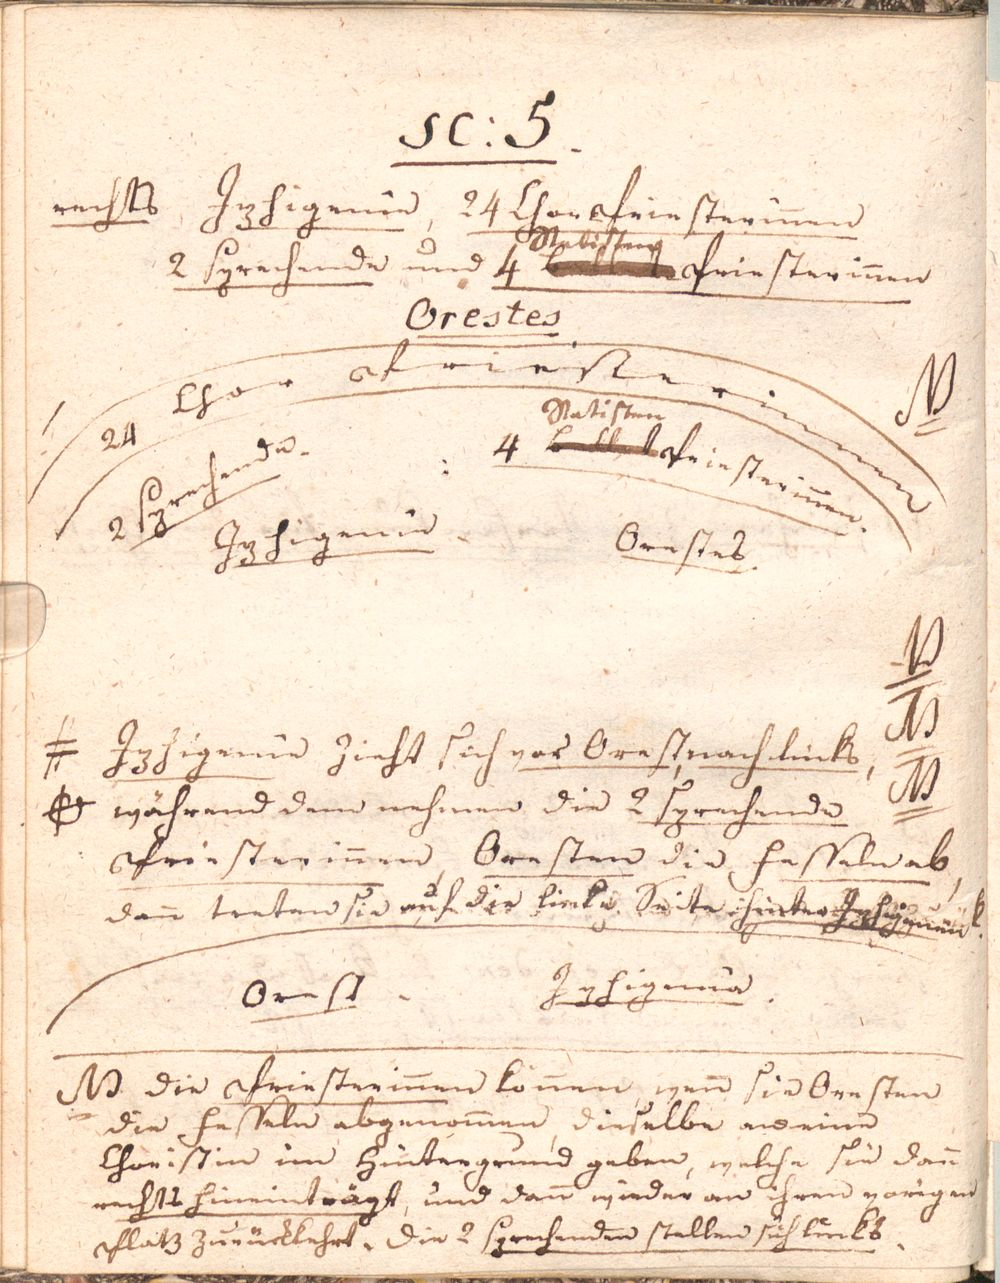 SC: 5.
rechts Iphigenie, 24 Chor Priesterinnen
2 sprechende und 4 Statisten Priesterinnen
Orestes
24 Chor Priesterinnen
NB
2 Sprechende.
4 Statisten Priesterinnen.
Iphigenie
Orestes.
NB
NB
NB
Iphigenie zieht sich vor Orest, nach links,
während dem nehmen die 2 sprechende
Priesterinnen Oresten die Fesseln ab,
dann treten sie auf die linke Seite hinter Iphigenie
Orest - Iphigenia.
NB die Priesterinnen können, wenn sie Oresten
die Fesseln abgenommen, dieselbe an eine
Choristin im Hintergrund geben, welche sie dann
rechts hineinträgt, und dann wieder an ihren vorigen
Platz zurückkehrt. Die 2 sprechenden stellen sich links.